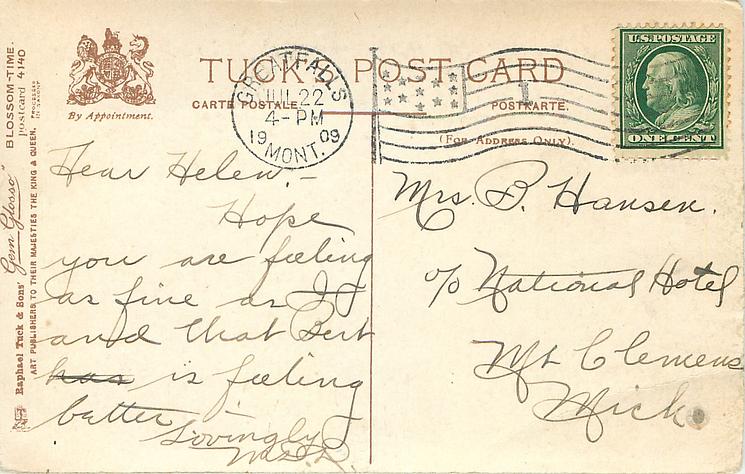 BLOSSOM-TIME.
postcard 4140
PROCESSED IN SAXONY
"Gem Glosso"
Raphael Tuck & Sons'
ART PUBLISHERS TO THEIR MAJESTIES THE KING & QUEEN.
By Appointment.
TUCK'S POST CARD
CARTE POSTALE.
POSTKARTE.
(FOR ADDRESS ONLY).
GREAT FALLS
JUL 22
4-PM
1909
MONT.
1
U.S. POSTAGE
ONE CENT
Dear Helen:-
Hope
you are feeling
as fine as I
and that Bert
has is feeling
better.
Lovingly
Mrs. B. Hansen.
c/o National Hotel
Mt Clemens
Mich.